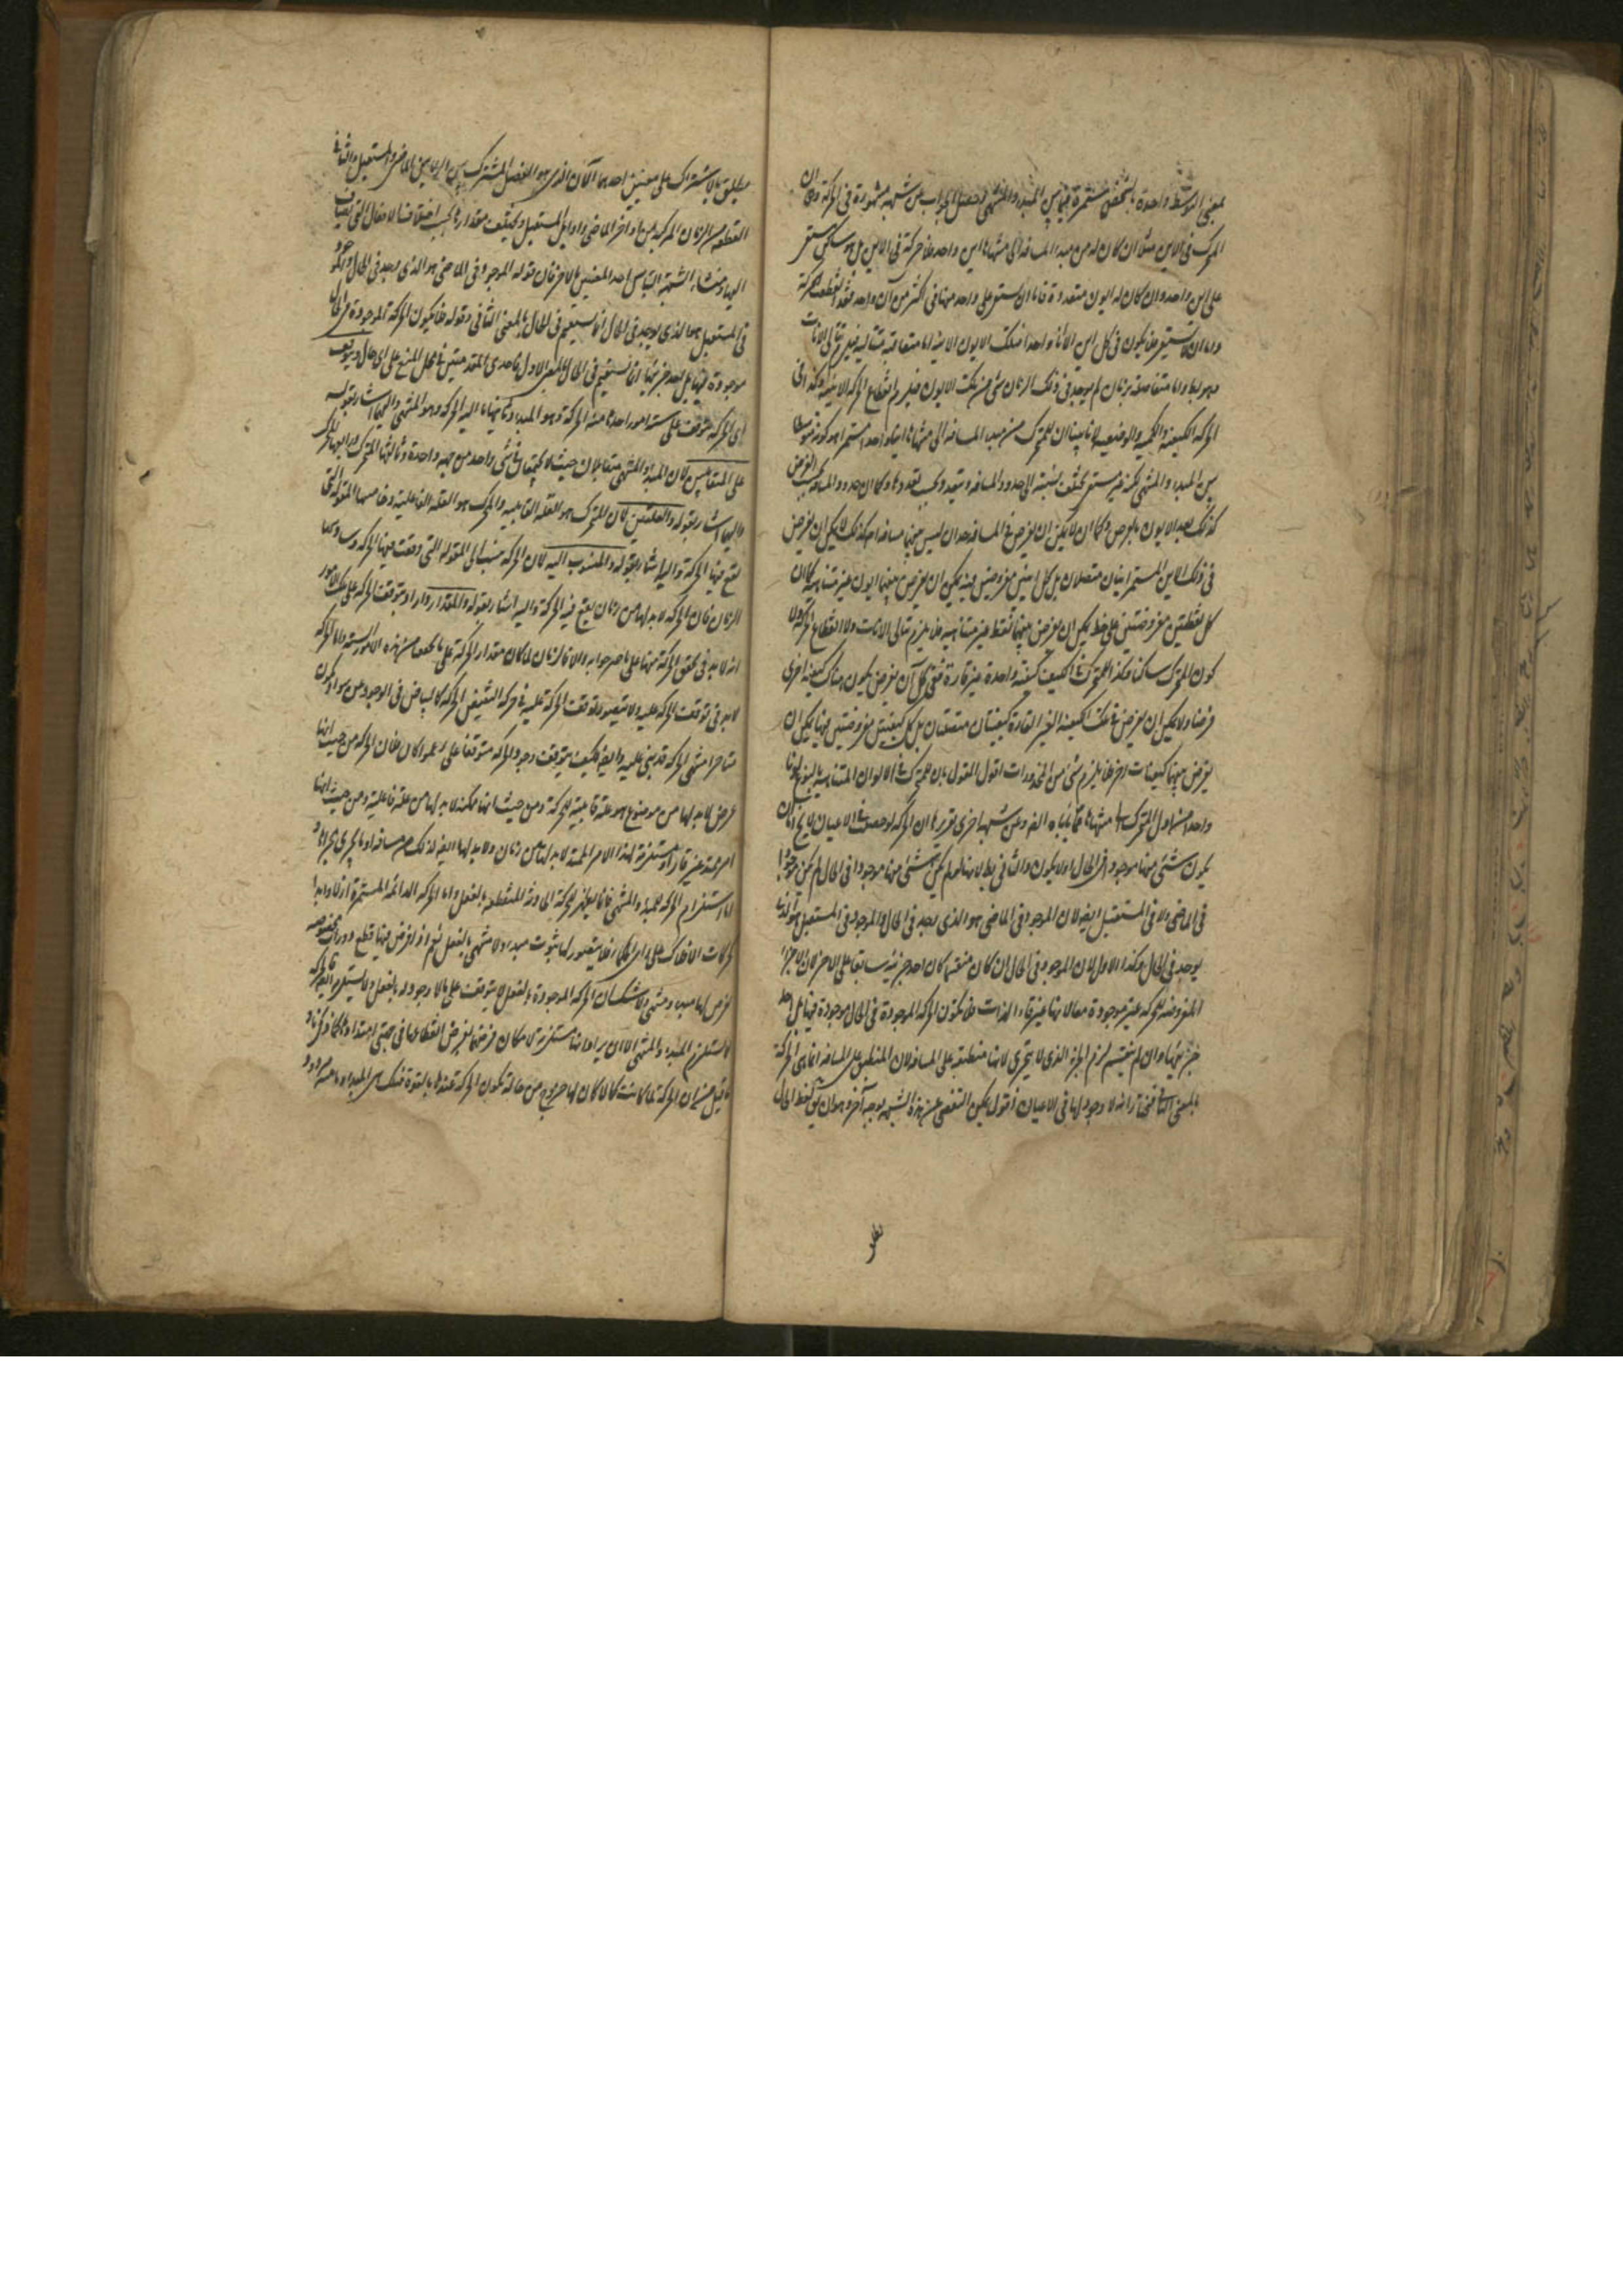 بمعنى التوسط واحدة بالشخص مستمرة فيما بين المبدء والمنتهى وحصل الجواب عن شبهة مشهورة فى الحركة وهى ان
المتحرك فى الاين مثلا ان كان له من مبدء المسافة الى منتهاها اين واحد فلا حركة فى الاين بل هو ساكن مستقر
على اين واحد وان كان له ايون متعددة فاما ان يستقر على واحد منها فى اكثر من آن واحد فقد انقطعت الحركة
واما ان لا يستقر فلا يكون فى كل اين الا آنا واحدا فتلك الايون الآنية اما متعاقبة متتالية فيلزم تتالى الآنات
وهو بط واما متفاصلة بزمان لم يوجد فى ذلك الزمان شئ من تلك الايون فيلزم انقطاع الحركة الاينية وكذا فى
الحركة الكيفية والكمية والوضعية لانا بينا ان للمتحرك من مبدء المسافة الى منتهاها اينا واحدا مستمرا هو كونه متوسطا
بين المبدء والمنتهى لكنه غير مستقر يختلف نسبته الى حدود المسافة ويتعدد بحسب تعددها وكما ان حدود المسافة بحسب الفرض
كذلك تعدد الايون بالفرض وكما ان لا يمكن ان يفرض فى المسافة حدان ليس بينهما مسافة اصلا كذلك لا يمكن ان يفرض
فى ذلك الاين المستمر اينان متصلان بل كل اينين مفروضين فيه يمكن ان يفرض بينهما ايون غير متناهية كما ان
كل نقطتين مفروضتين على خط يمكن ان يفرض بينهما نقط غير متناهية فلا يلزم تتالى الآنات ولا انقطاع الحركة ولا
كون المتحرك ساكنا وكذا للمتحرك فى الكيف كيفية واحدة غير قارة ففى كل آن يفرض يكون هناك كيفية اخرى
فرضا ولا يمكن ان يفرض فى تلك الكيفية الغير القارة كيفيتان متصلتان بل كل كيفيتين مفروضتين فيها يمكن ان
يفرض بينهما كيفيات اخر فلا يلزم شئ من المحذورات اقول القول بان للمتحرك فى الالوان المتباينة بالنوع لونا
واحدا من اول المتحرك الى منتهاها مما يأباه الفهم وعن شبهة اخرى تقريرها ان الحركة لو حصلت فى الاعيان لا يخ اما ان
يكون شئ منها موجودا فى الحال اولا يكون والثانى بط لانها لو لم يكن شئ منها موجودا فى الحال لم يكن موجودا
فى الماضى ولا فى المستقبل ايضا لان الموجود فى الماضى هو الذى يوجد فى الحال والموجود فى المستقبل هو الذى
يوجد فى الحال وكذا الاول لان الموجود فى الحال ان كان منقسما كان احد جزئيه سابقا على الآخر لان الاجزاء
المفروضة للحركة غير موجودة معا لانها غير قارة الذات فلا يكون الحركة الموجودة فى الحال موجودة فيها بل احد
جزئيها وان لم ينقسم لزم الجزء الذى لا يتجزى لانها منطبقة على المسافة لان المنطبق على المسافة انما هى الحركة
بالمعنى الثانى وقد مر انه لا وجود لها فى الاعيان اقول يمكن التفصى عن هذه الشبهة بوجه آخر وهو ان يق لفظ الحال
يطلق بالاشتراك على معنيين احدهما الآن الذى هو الفصل المشترك بين الزمانين الماضى والمستقبل والثانى
القطعة من الزمان المركبة من اواخر الماضى واوايل المستقبل ويختلف مقدارها بحسب اختلاف الافعال التى يضاف
اليها ومنشاء الشبهة التباس احد المعنيين بالآخر فان قوله الموجود فى الماضى هو الذى وجد فى الحال والموجود
فى المستقبل هو الذى يوجد فى الحال انما يستقيم فى الحال بالمعنى الثانى وقوله فلا يكون الحركة الموجودة فى الحال
موجودة فيها بل احد جزئيها انما يستقيم فى الحال بالمعنى الاول فاحدى المقدمتين فى محل المنع على اى حال ويتوقف
اى الحركة تتوقف على ستة امور احدها ما منه الحركة وهو المبدء وثانيها ما اليه الحركة وهو المنتهى واليهما اشار بقوله
على المتقابلين لان المبدء والمنتهى متقابلان حيث لا يجتمعان فى شئ واحد من جهة واحدة وثالثها المتحرك ورابعها المحرك
واليهما اشار بقوله والعلتين لان المتحرك هو العلة القابلية والمحرك هو العلة الفاعلية وخامسها المقولة التى
تقع فيها الحركة واليه اشار بقوله والمنسوب اليه لان الحركة تنسب الى المقولة التى وقعت فيها الحركة وسادسها
الزمان فان الحركة لابد لها من زمان يقع فيه الحركة واليه اشار بقوله والمقدار واراد بتوقف الحركة على تلك الامور
انه لا بد فى تحقق الحركة منها على ما صرحوا به والا فالزمان لما كان مقدار الحركة
لابد فى توقف الحركة عليه ولا يتصور توقف الحركة عليه
متاخرا منتهى الحركة قد يبنى عليه وايضا فكيف يتوقف وجود الحركة متوقفا على كل حال فان الحركة من حيث انها
عرض لا بد لها من موضوع هو علة قابلية للحركة ومن حيث انها ممكنة لا بد لها من علة فاعلية ومن حيث انها
امر ممتد غير قار او مستلزمة لهذا الامر الممتد لا بد لها من زمان ولا بد لها ايضا لذلك من مسافة او ما يجرى مجراها
اما استلزام الحركة للمبدء والمنتهى فانما يظهر فى الحركة الحادثة المنقطعة بالفعل واما الحركة الدائمة المستمرة ازلا وابدا
كحركات الافلاك على راى الحكماء فلا يتصور لها ثبوت مبدء ولا منتهى بالفعل نعم اذا فرض فيها قطع ودورات مخصوصة
فرض لها مبدء ومنتهى ولا شك ان الحركة الموجودة بالفعل لا يتوقف على ما لا وجود له بالفعل ولا يستلزم
لا يستلزم المبدء والمنتهى الا ان يراد انها مستلزمة لامكان فرضهما بفرض انقطاعها فى جهتى امتدادها
ما قيل من ان الحركة لما كانت كمالا كان لها خروج من حالة يكون الحركة عندها بالقوة فتلك هى المبدء
نطلق